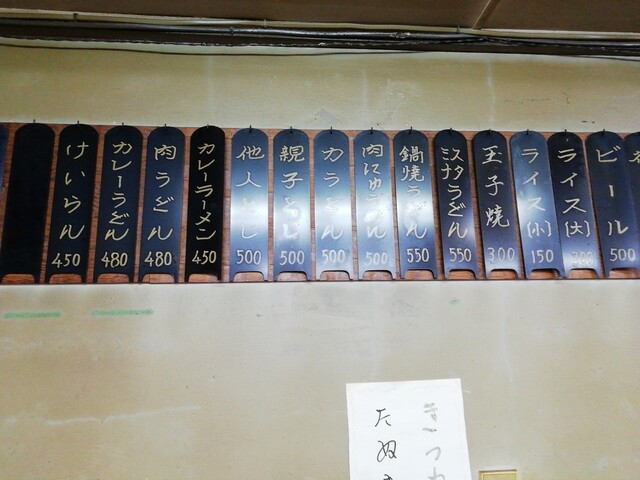 けいらん 450
カレーうどん 480
肉うどん 480
カレーラーメン 450
他人とじ 500
親子とじ 500
カうどん 500
肉にゅうめん 500
鍋焼うどん 550
スタミナうどん 550
玉子焼 300
ライス(小) 150
ライス(大)
ビール 500
きつね
たぬき